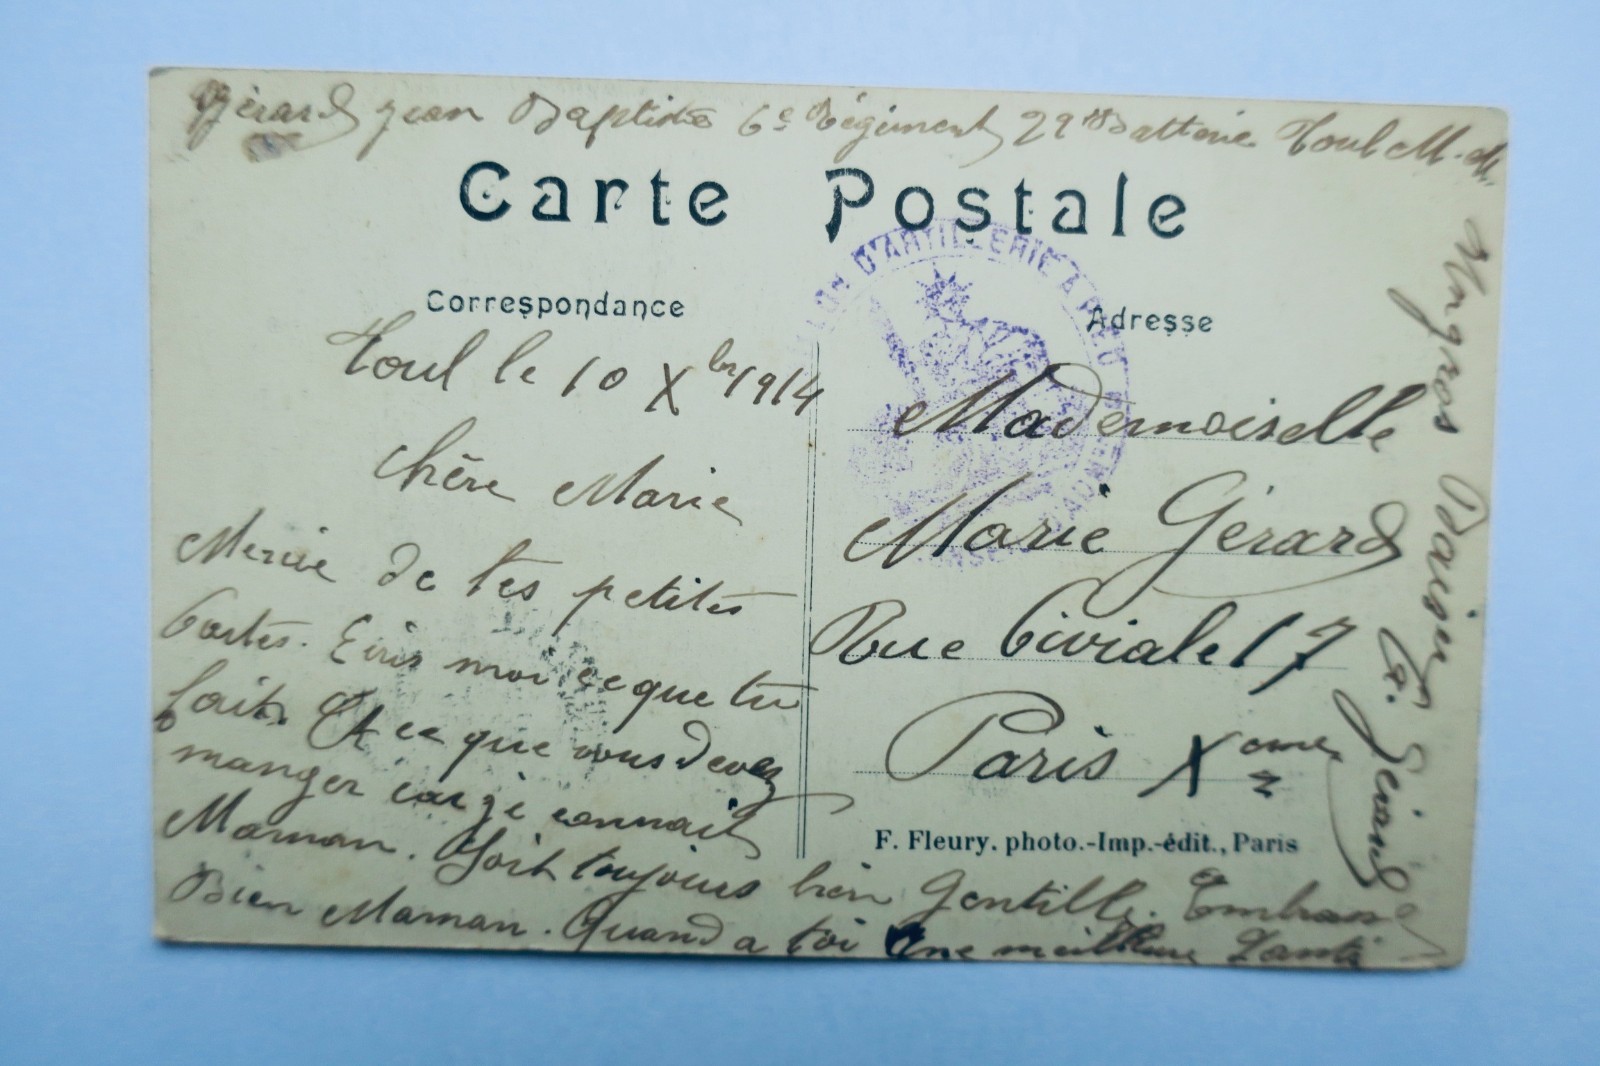 Gérard Jean Baptiste 6e Régiment 29e Batterie Toul M.-M.
Carte Postale
Correspondance
Adresse
D'ARTILLERIE À PIED
Toul le 10 Xbre 1914
Chère Marie
Mercie de tes petites
Cartes. Ecris moi ce que tu
fait. Et ce que vous devez
manger car je connait
Maman. Soit toujours bien Gentille. Embrasse
Bien Maman. Quand a toi Une meilleure Santé
Mademoiselle
Marie Gérard
Rue Civiale 17
Paris Xeme
F. Fleury, photo.-Imp.-édit., Paris
Un gros Baiser
Gérard